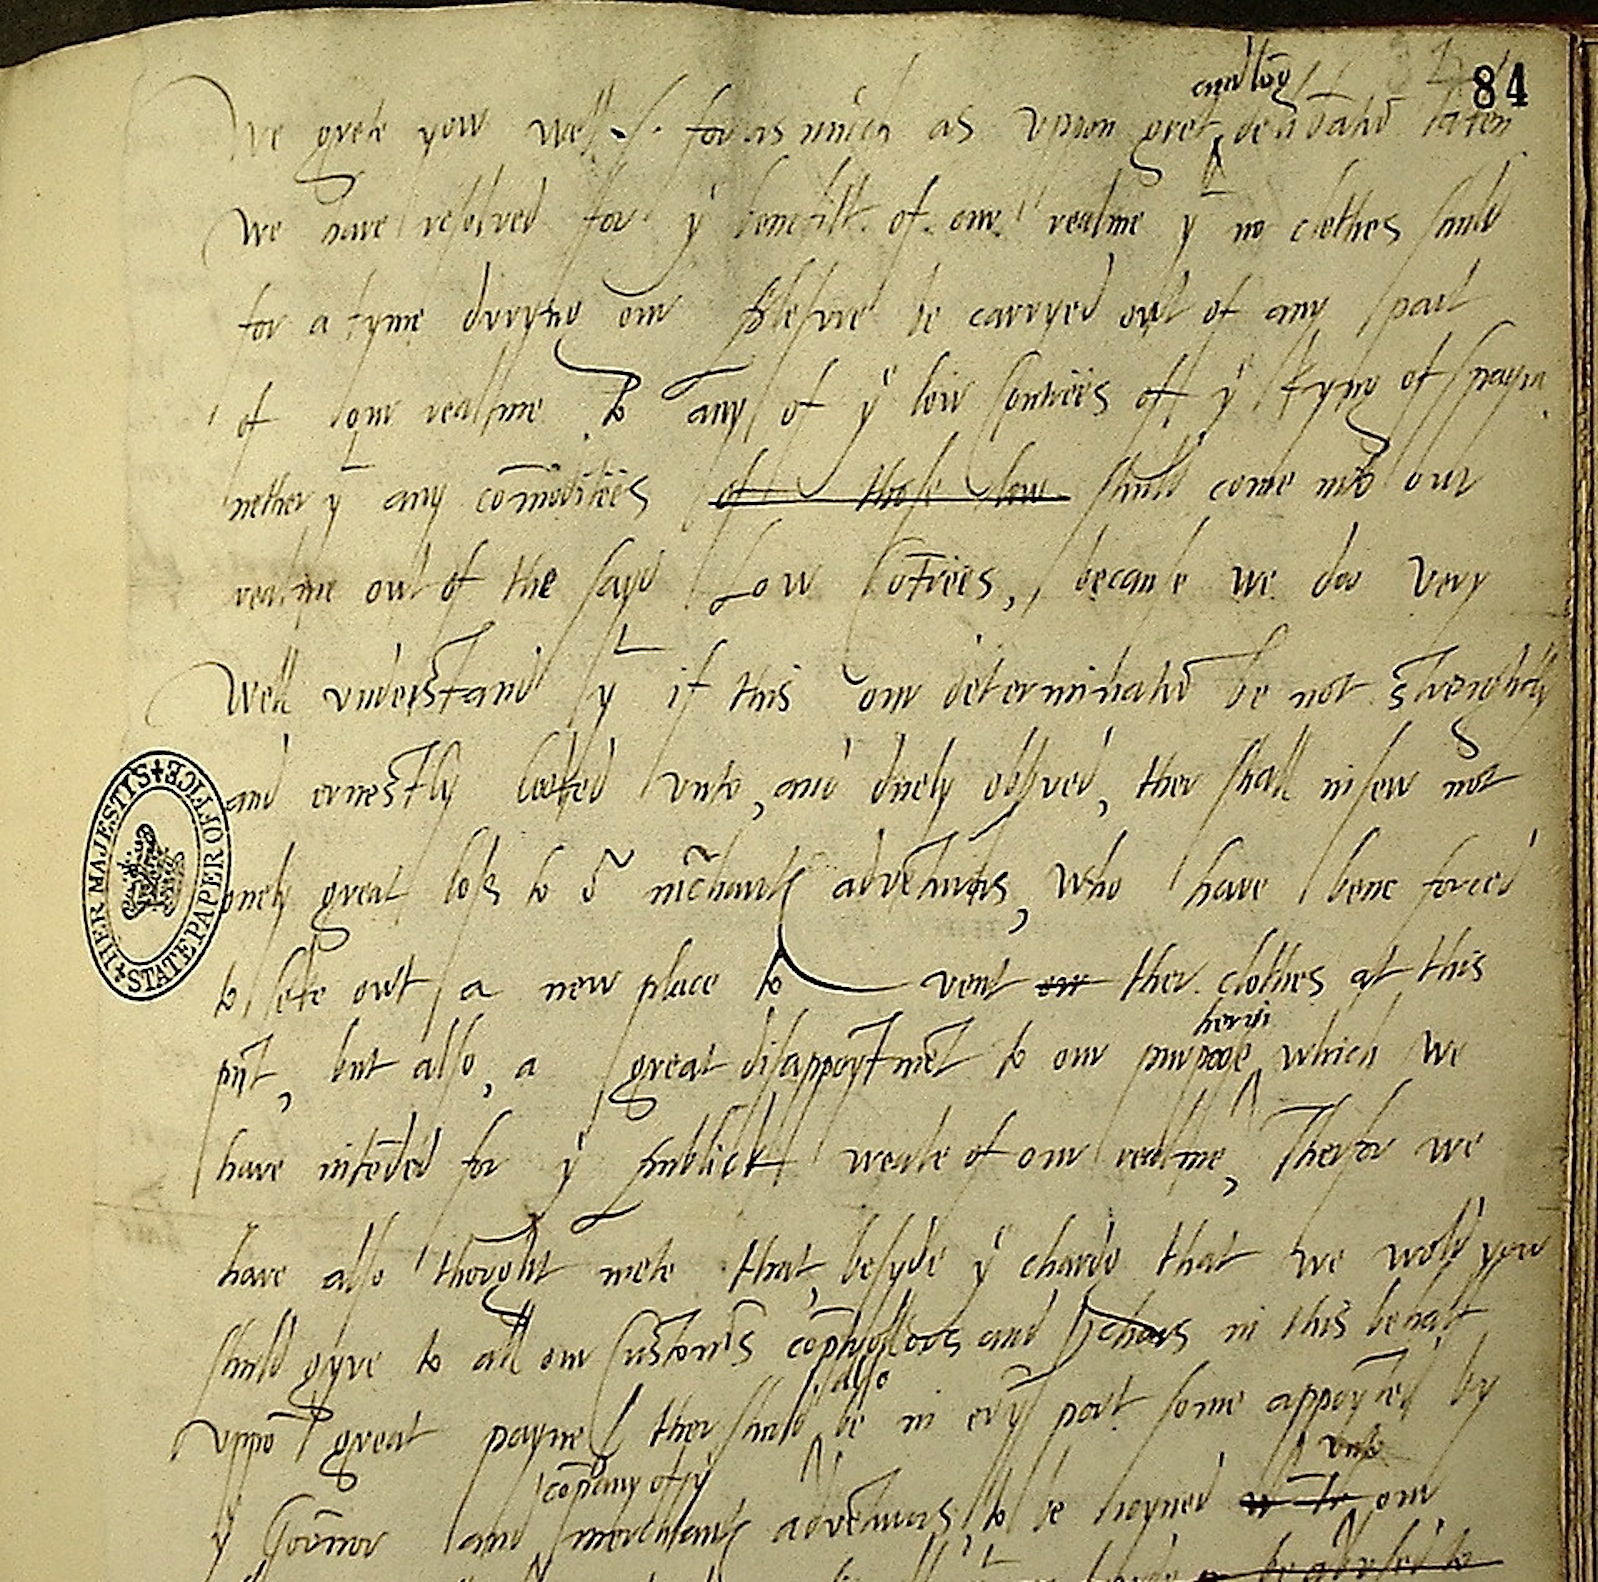 84
and long
We grete yow well. for as much as vppon gret deliberatiō taken
we have resolved for yͤ benefitt of our realme yͭ no clothes shuld
for a tyme duryng our plesure be carryed owt of any part
of our realme to any of yͤ low Contrees of yͤ Kyng of Spayn
nether yͭ any cōmoditees of those low shuld come into our
realme owt of the sayd Low Cōtrees, because we doo very
well vnderstand yͭ if this our determinatiō be not streightly
and ernestly looked vnto, and duely obsᵱved, ther shall insew not
onely great loss to oʳ mᵉchantes adventurers, who have bene forced
to seke owt a new place to vent our ther clothes at this
pñt, but also, a great disappoyntmēt to our purpose which we
heryn
have intēded for yͤ publick weale of our realme, Therfor we
have also thought mete that besyde yͤ charg that we wold yow
shuld gyve to all our Customers cōptrollors and serchors in this behalf
vppō great payne, ther shuld be in evʳy port some appoynted by
also
vnto
company of yͤ
yͤ Govʳnor and merchantes adventurers to be ioyned to our